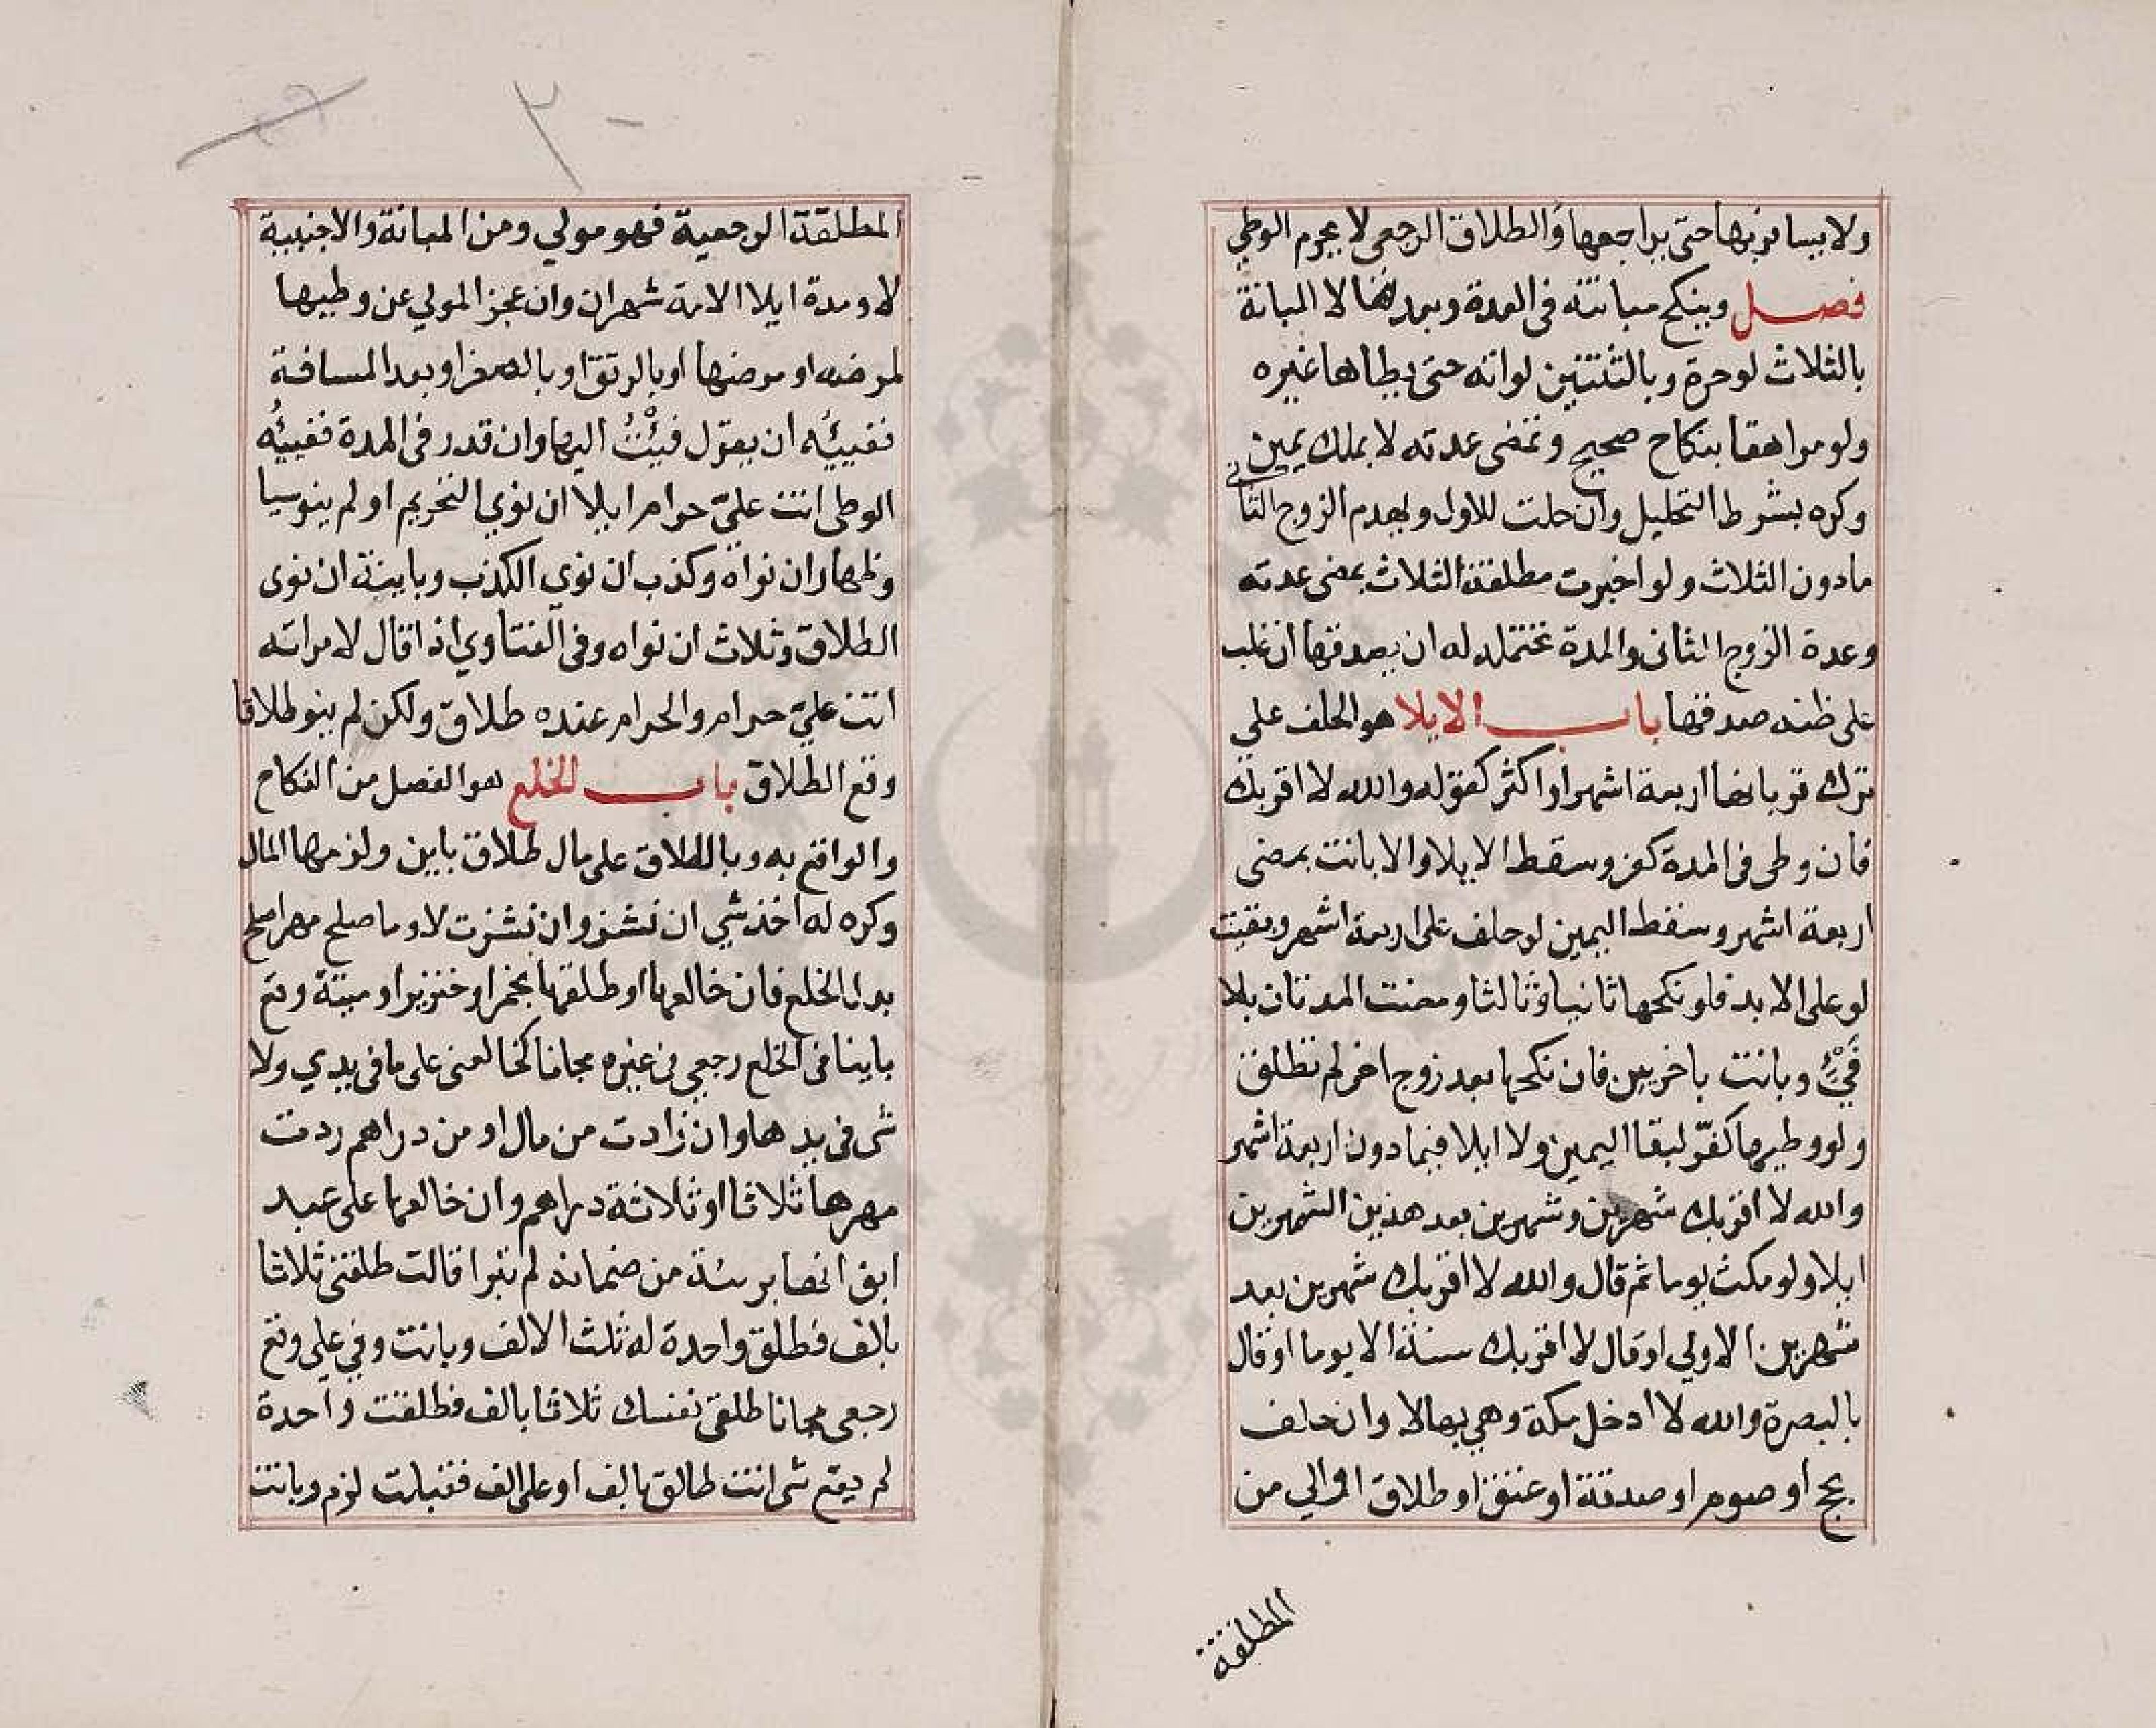 ولا يسافر بها حتى يراجعها والطلاق الرجعي لا يحرم الوطي
فصل وينكح مبانته في العدة وبعدها لا المبانة
بالثلاث لو حرة وبالثنتين لو امة حتى يطاها غيره
ولو مراهقا بنكاح صحيح وتمضى عدته لا بملك يمين
وكره بشرط التحليل وان حلت للاول ويهدم الزوج الثاني
مادون الثلاث ولو اخبرت مطلقة الثلاث بمضى عدته
وعدة الزوج الثانى والمدة تحتمله له ان يصدقها ان غلب
على ظنه صدقها باب الايلا هو الحلف علي
ترك قربانها اربعة اشهر او اكثر كقوله والله لا اقربك
فان وطى فى المدة كفر وسقط الايلا والا بانت بمضى
اربعة اشهر وسقط اليمين لو حلف على اربعة اشهر وبقيت
لو على الابد فلو نكحها ثانيا وثالثا ومضت المدتان بلا
فيء وبانت باخريين فان نكحها بعد زوج اخر لم تطلق
ولو وطيها كفر لبقا اليمين ولا ايلا فيما دون اربعة اشهر
والله لا اقربك شهرين وشهرين بعد هذين الشهرين
ايلا ولو مكث يوما ثم قال والله لا اقربك شهرين بعد
شهرين الاولي او قال لا اقربك سنة الا يوما او قال
بالبصرة والله لا ادخل مكة وهي بها لا وان حلف
بحج او صوم او صدقة او عتق او طلاق او الي من
المطلقة
المطلقة الرجعية فهو مولي ومن المبانة والاجنبية
لا ومدة ايلا الامة شهران وان عجز المولي عن وطيها
لمرضه او مرضها او بالرتق او بالصغر او بعد المسافة
ففييئه ان يقول فيئت اليها وان قدر في المدة ففييئه
الوطى انت علي حرام ايلا ان نوي التحريم او لم ينو شيا
وظهار ان نواه وكذب ان نوي الكذب وباينة ان نوى
الطلاق وثلاث ان نواه وفى الفتاوي اذا قال لامراته
انت علي حرام والحرام عنده طلاق ولكن لم ينو طلاقا
وقع الطلاق باب الخلع هو الفصل من النكاح
والواقع به وبالطلاق على مال طلاق باين ولزمها المال
وكره له اخذ شي ان نشز وان نشزت لا وما صلح مهرا صلح
بدل الخلع فان خالعها او طلقها بخمر او خنزير او ميتة وقع
باينا فى الخلع رجعي فى غيره مجانا كخالعنى على ما فى يدي ولا
شى فى يدها وان زادت من مال او من دراهم ردت
مهرها ثلاثا او ثلاثة دراهم وان خالعها على عبد
ابق انها بريئة من ضمانه لم تبرا قالت طلقنى ثلاثا
بالف فطلق واحدة له ثلث الالف وبانت وفي علي وقع
رجعى مجانا طلقى نفسك ثلاثا بالف فطلقت واحدة
لم يقع شى انت طالق بالف او على الف فقبلت لزم وبانت